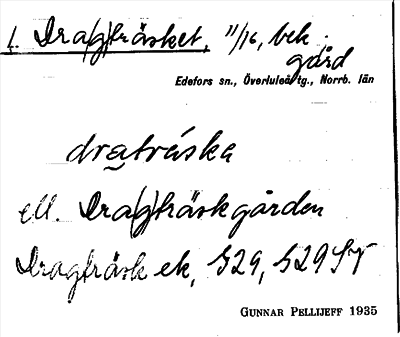 1. Dra(g)träsket, 11/16, bek.
gård
Edefors sn., Överluleå tg., Norrb. län
dratráska
ell. Dra(g)träskgården
Dragträsk ek, 529, 529
GUNNAR PELLIJEFF 1935